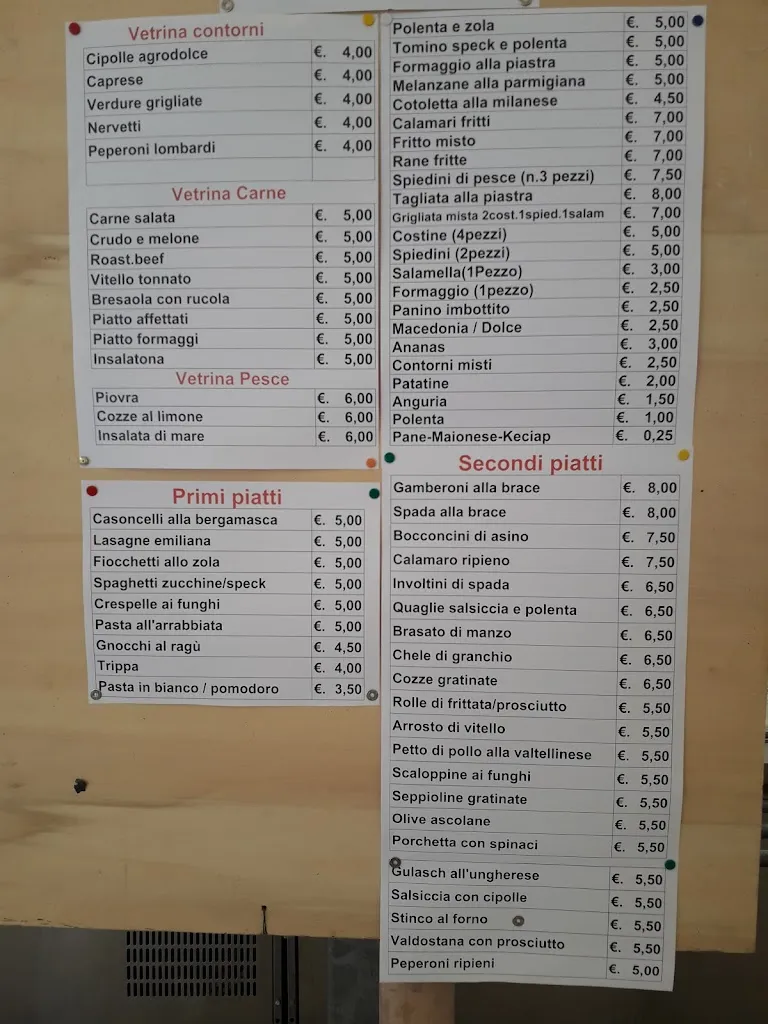 Vetrina contorni
Cipolle agrodolce €. 4,00
Caprese €. 4,00
Verdure grigliate €. 4,00
Nervetti €. 4,00
Peperoni lombardi €. 4,00
Vetrina Carne
Carne salata €. 5,00
Crudo e melone €. 5,00
Roast.beef €. 5,00
Vitello tonnato €. 5,00
Bresaola con rucola €. 5,00
Piatto affettati €. 5,00
Piatto formaggi €. 5,00
Insalatona €. 5,00
Vetrina Pesce
Piovra €. 6,00
Cozze al limone €. 6,00
Insalata di mare €. 6,00
Primi piatti
Casoncelli alla bergamasca €. 5,00
Lasagne emiliana €. 5,00
Fiocchetti allo zola €. 5,00
Spaghetti zucchine/speck €. 5,00
Crespelle ai funghi €. 5,00
Pasta all'arrabbiata €. 5,00
Gnocchi al ragù €. 4,50
Trippa €. 4,00
Pasta in bianco / pomodoro €. 3,50
Polenta e zola €. 5,00
Tomino speck e polenta €. 5,00
Formaggio alla piastra €. 5,00
Melanzane alla parmigiana €. 5,00
Cotoletta alla milanese €. 4,50
Calamari fritti €. 7,00
Fritto misto €. 7,00
Rane fritte €. 7,00
Spiedini di pesce (n.3 pezzi) €. 7,50
Tagliata alla piastra €. 8,00
Grigliata mista 2cost.1spied.1salam €. 7,00
Costine (4pezzi) €. 5,00
Spiedini (2pezzi) €. 5,00
Salamella(1Pezzo) €. 3,00
Formaggio (1pezzo) €. 2,50
Panino imbottito €. 2,50
Macedonia / Dolce €. 2,50
Ananas €. 3,00
Contorni misti €. 2,50
Patatine €. 2,00
Anguria €. 1,50
Polenta €. 1,00
Pane-Maionese-Keciap €. 0,25
Secondi piatti
Gamberoni alla brace €. 8,00
Spada alla brace €. 8,00
Bocconcini di asino €. 7,50
Calamaro ripieno €. 7,50
Involtini di spada €. 6,50
Quaglie salsiccia e polenta €. 6,50
Brasato di manzo €. 6,50
Chele di granchio €. 6,50
Cozze gratinate €. 6,50
Rolle di frittata/prosciutto €. 5,50
Arrosto di vitello €. 5,50
Petto di pollo alla valtellinese €. 5,50
Scaloppine ai funghi €. 5,50
Seppioline gratinate €. 5,50
Olive ascolane €. 5,50
Porchetta con spinaci €. 5,50
Gulasch all'ungherese €. 5,50
Salsiccia con cipolle €. 5,50
Stinco al forno €. 5,50
Valdostana con prosciutto €. 5,50
Peperoni ripieni €. 5,00